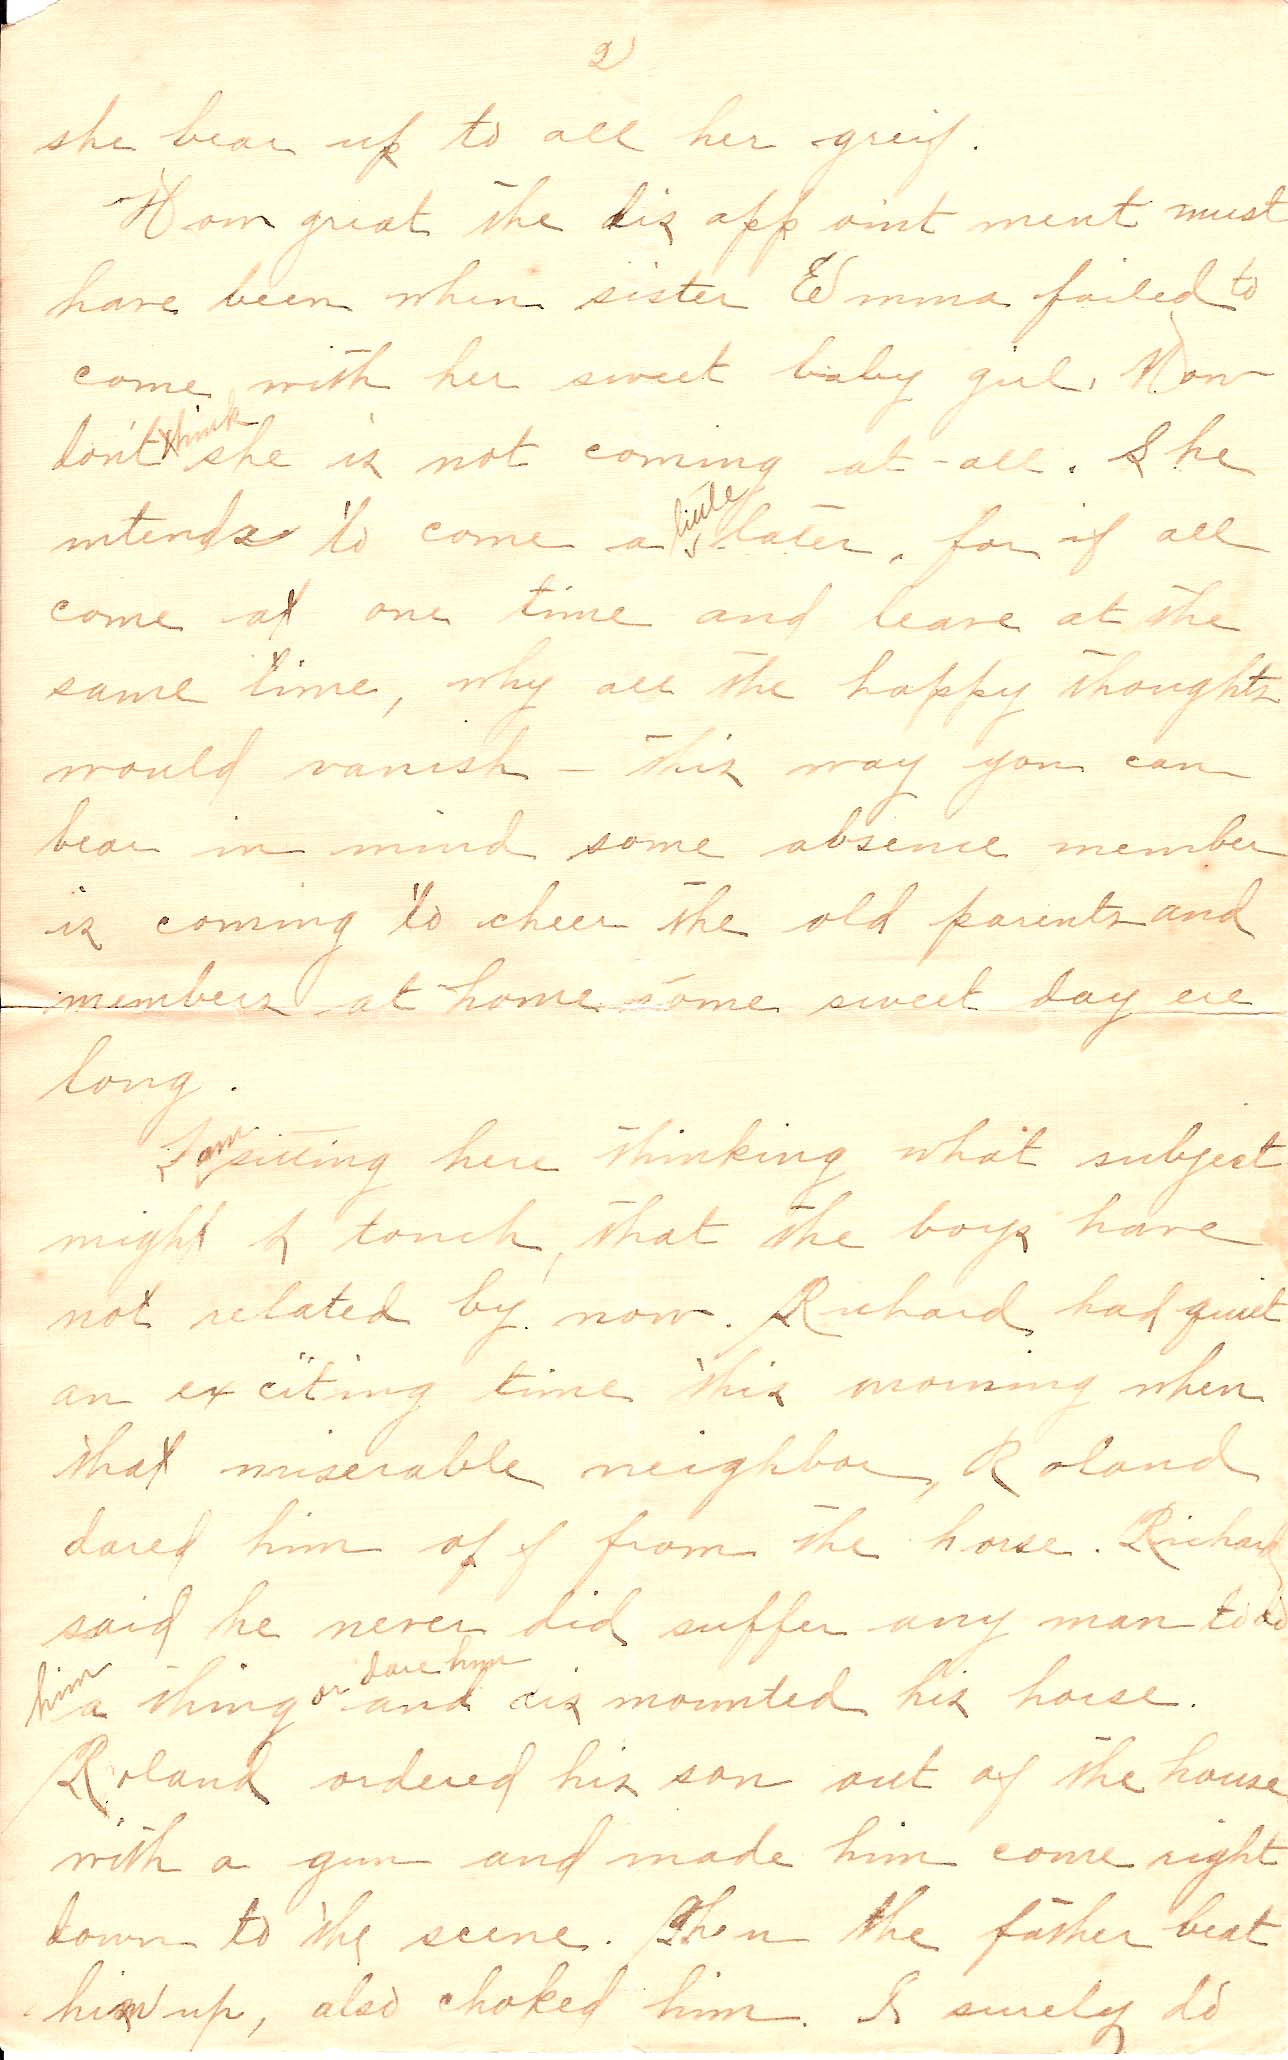 2
she bear up to all her greif.
How great the dis app oint ment must
have been when sister Emma failed to
come with her sweet baby girl. Now
don't think she is not coming at-all. She
intends to come a little later, for if all
come at one time and leave at the
same time, why all the happy thoughts
would vanish - this way you can
bear in mind some absence member
is coming to cheer the old parents and
members at home some sweet day ere
long.
I am sitting here thinking what subject
might I touch, that the boys have
not related by now. Richard had quiet
an exciting time this morning when
that miserable neighbor, Roland
dared him off from the horse. Richard
said he never did suffer any man to do
him a thing or dare him and dis mounted his horse.
Roland ordered his son out of the house
with a gun and made him come right
down to the scene. Then the father beat
him up, also choked him. I surely do